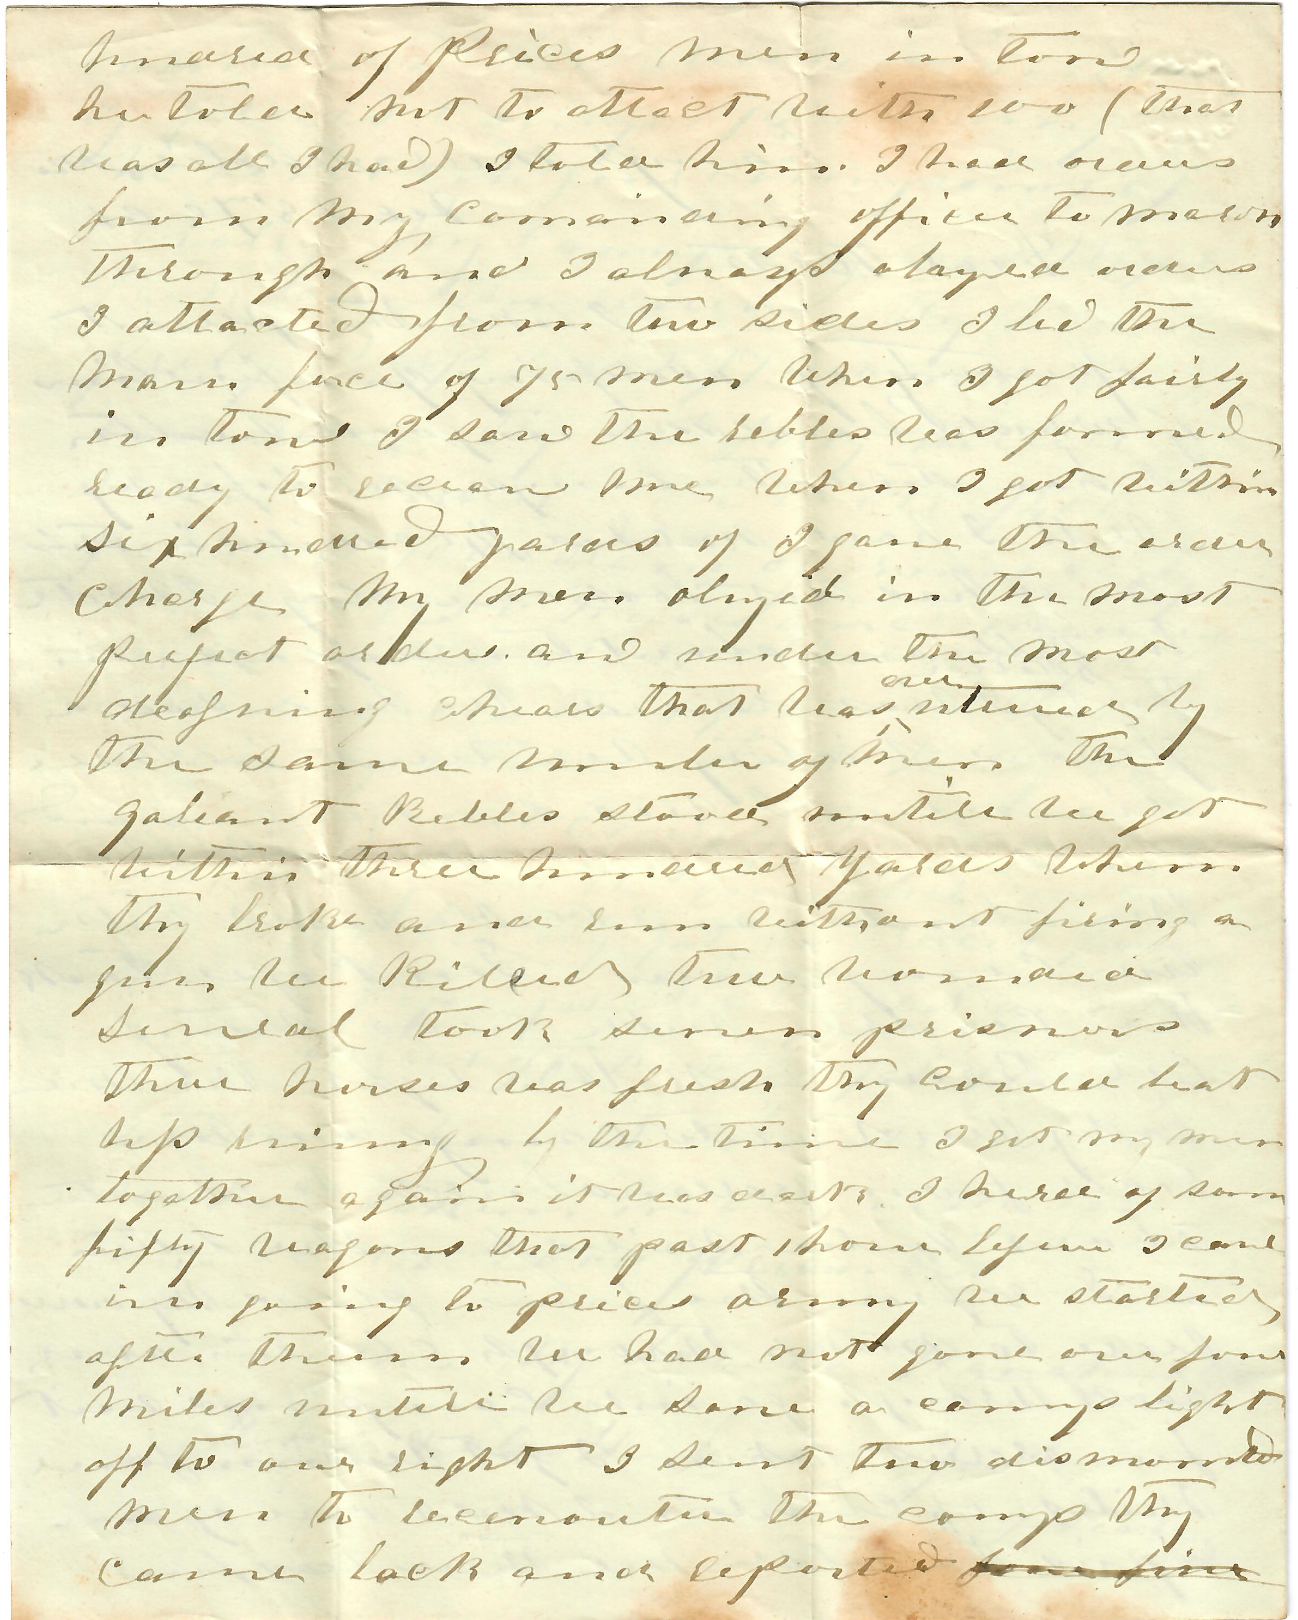 hundred of Prices men in town
he told not to attact with 100 (that
was all I had) I told him. I had orders
from my comanding officer to march
through and I always obayed orders
I attacted from two sides I led the
main force of 75 men when I got fairly
in town I saw the rebbles was formed
ready to recieve me when I got within
six hundred yards of I gave the order
Charge my men obayed in the most
perfect order. and under the most
deafning chears that was ever uttered by
the same number of men the
galiant Rebbles stood untill we got
within three hundred yards when
they broke and run without firing a
gun we Killed two wounded
several took seven prisnors
thire horses was fresh they could beat
us runing by the time I got my men
together again it was dark. I heard of some
fifty wagons that past 1 hour before I came
in going to prices army we started
after them we had not gone over four
miles untill we saw a camp light
off to our right I sent two dismounted
men to recenouter the camp they
came back and reported four five